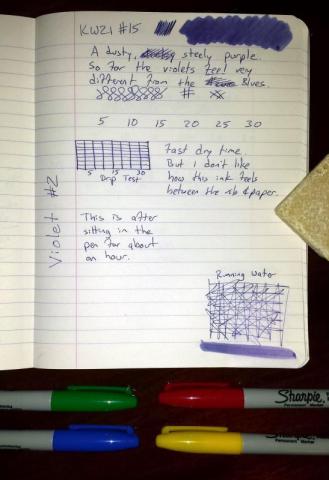 KWZI #15
A dusty, steely purple.
So far the violets feel very
different from the blues.
5 10 15 20 25 30
5 15 30
Drip Test
Fast dry time.
But I don't like
how this ink feels
between the nib & paper.
Violet #2
This is after
sitting in the
pen for about
an hour.
Running water
Sharpie
Permanent Marker